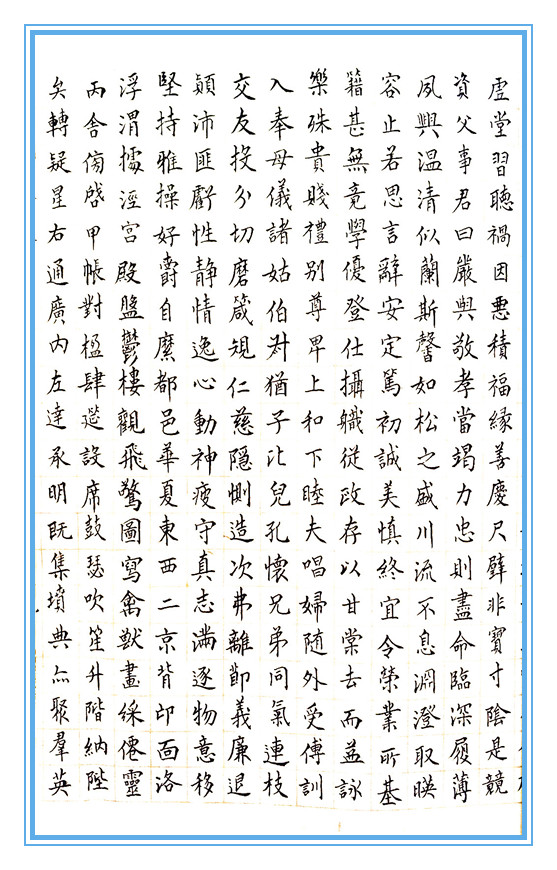 虛堂習聽禍因惡積福緣善慶尺璧非寶寸陰是競
資父事君曰嚴與敬孝當竭力忠則盡命臨深履薄
夙興溫清似蘭斯馨如松之盛川流不息淵澄取暎
容止若思言辭安定篤初誠美慎終宜令榮業所基
籍甚無竟學優登仕攝職從政存以甘棠去而益詠
樂殊貴賤禮別尊卑上和下睦夫唱婦随外受傅訓
入奉母儀諸姑伯叔猶子比兒孔懷兄弟同氣連枝
交友投分切磨箴規仁慈隱惻造次弗離節義廉退
顛沛匪虧性静情逸心動神疲守真志滿逐物意移
堅持雅操好爵自縻都邑華夏東西二京背邙面洛
浮渭據涇宮殿盤鬱樓觀飛驚圖寫禽獸畫綵僊靈
丙舍傍啓甲帳對楹肆筵設席鼓瑟吹笙升階納陛
矣轉疑星右通廣内左達承明既集墳典亦聚羣英